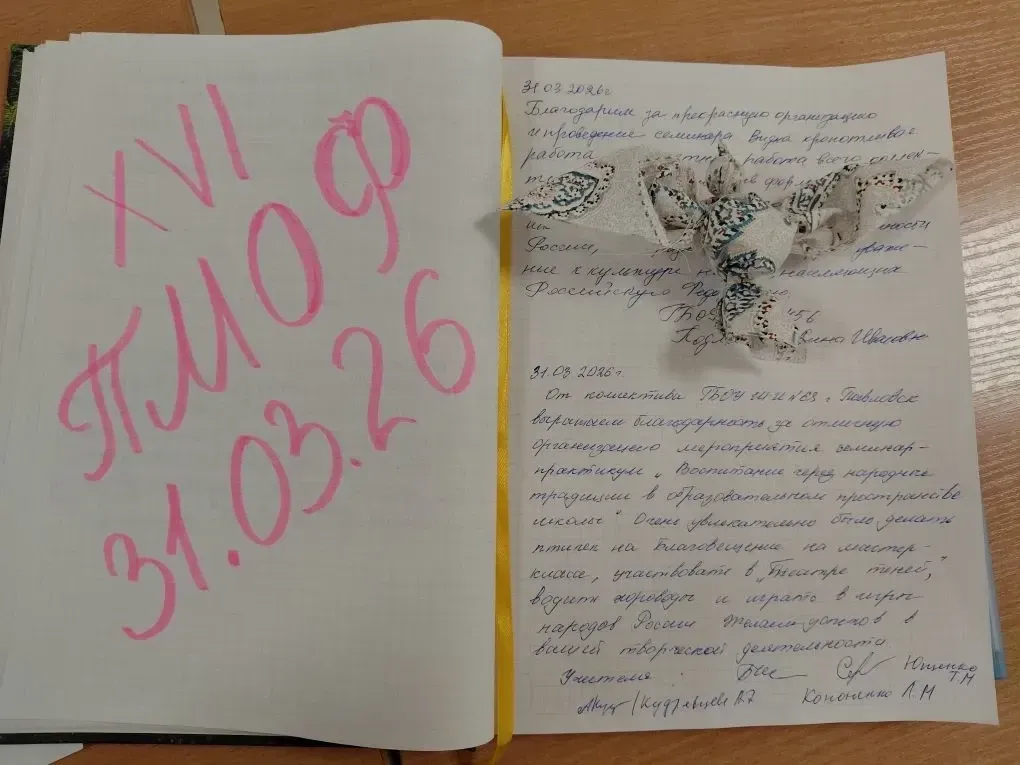 XVI
ПМОФ
31.03.26
31 03 2026г
Благодарим за прекрасную организацию
и проведение семинара Видна кропотливая
работа работа всего коллек-
в
России,
ние к культуре населяющих
Российскую
456
Елены Ивановны
31.03.2026г.
От коллектива ГБОУ Ш-И №63 г Павловск
выражаем благодарность за отличную
организацию мероприятия семинар-
практикум „Воспитание через народные
традиции в образовательном пространстве
школы" Очень увлекательно было делать
птичек на Благовещение на мастер-
классе, участвовать в „Театре теней,"
водить хороводы и играть в игры
народов России Желаем успехов в
вашей творческой деятельности.
Учителя Ющенко
Т М
Кононенко Л.М